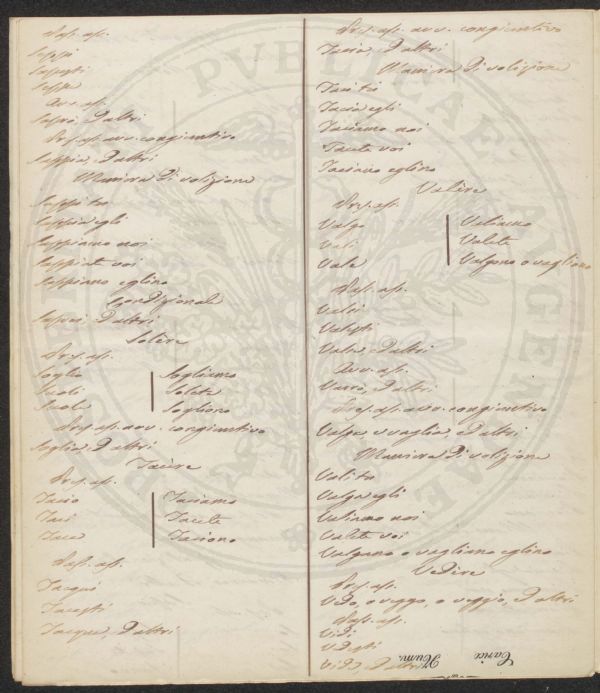 Pas. as.
Seppi
Sapesti
Seppe
Avv. as.
Saprò, ed altri
Pres. as. avv. congiuntivo
Sappia, ed altri
Maniera di volizione
Sappi tu
Sappia egli
Sappiamo noi
Sappiate voi
Sappiano eglino
Condizionale
Saprei ed altri
Solère
Pres. as.
Soglio | Sogliamo
Suoli | Solete
Suole | Sogliono
Pres. as. avv. congiuntivo
Soglia, ed altri
Tacère
Pres. as.
Tacio | Taciamo
Taci | Tacete
Tace | Taciono
Pass. ass.
Tacqui
Tacesti
Tacque, ed altri
Pres. as. avv. congiuntivo
Tacia, ed altri
Maniera di volizione
Taci tu
Tacia egli
Taciamo noi
Tacete voi
Taciano eglino
Valère
Pres. as.
Valgo | Valiamo
Vali | Valete
Vale | Valgono o vagliono
Pass. as.
Valsi
Valesti
Valse, ed altri
Avv. as.
Varrò, ed altri
Pres. as. avv. congiuntivo
Valga o vaglia, ed altri
Maniera di volizione
Vali tu
Valga egli
Valiamo noi
Valete voi
Valgano o vagliano eglino
Vedère
Pres. as.
Vedo, o veggo, o veggio, ed altri
Pass. as.
Vidi
Vedesti
Vide, ed altri
Carice
Num.